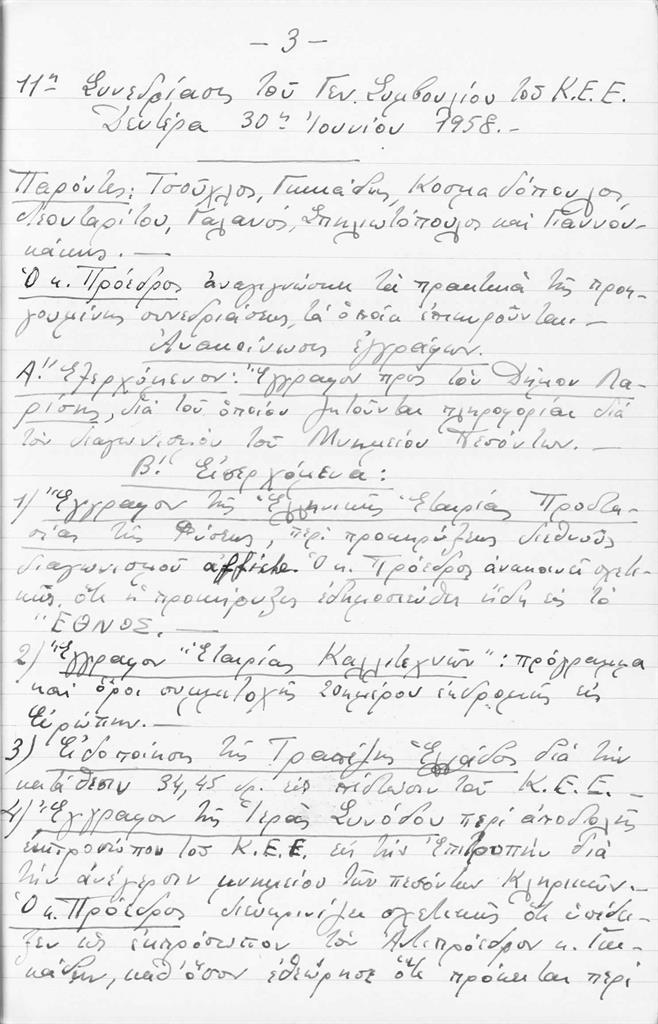 - 3 -
11η Συνεδρίασις τοῦ Γεν. Συμβουλίου τοῦ Κ.Ε.Ε.
Δευτέρα 30η Ἰουνίου 1958.-
Παρόντες: Τσοῦχλος, Γκικάδης, Κοσμαδόπουλος,
Λεονταρίτου, Γαλανός, Σπηλιωτόπουλος καὶ Γιαννου-
κάκης. —
Ὁ κ. Πρόεδρος ἀναγιγνώσκει τὰ πρακτικὰ τῆς προη-
γουμένης συνεδριάσεως, τὰ ὁποῖα ἐπικυροῦνται.—
Ἀνακοίνωσις ἐγγράφων.
Α!' Ἐξερχόμενον: Ἔγγραφον πρὸς τὸν Δῆμον Λα-
ρίσης, διὰ τοῦ ὁποίου ζητοῦνται πληροφορίαι διὰ
τὸν διαγωνισμὸν τοῦ Μνημείου Πεσόντων. —
Β!' Εἰσερχόμενα:
1) Ἔγγραφον τῆς Ἑλληνικῆς Ἑταιρίας Προστα-
σίας τῆς Φύσεως, περὶ προκηρύξεως διεθνοῦς
διαγωνισμοῦ affiche. Ὁ κ. Πρόεδρος ἀνακοινεῖ σχετι-
κῶς, ὅτι ἡ προκήρυξις ἐδημοσιεύθη ἤδη εἰς τὸ
"ΕΘΝΟΣ. —
2) Ἔγγραφον "Ἑταιρίας Καλλιτεχνῶν": πρόγραμμα
καὶ ὅροι συμμετοχῆς 20ημέρου ἐκδρομῆς εἰς
Εὐρώπην.—
3) Εἰδοποίησις τῆς Τραπέζης Ἑλλάδος διὰ τὴν
κατάθεσιν 34,45 δρ. εἰς πίστωσιν τοῦ Κ.Ε.Ε. —
4) Ἔγγραφον τῆς Ἱερᾶς Συνόδου περὶ ἀποστολῆς
ἐκπροσώπου τοῦ Κ.Ε.Ε. εἰς τὴν Ἐπιτροπὴν διὰ
τὴν ἀνέγερσιν μνημείου τῶν πεσόντων Κληρικῶν.—
Ὁ κ. Πρόεδρος διευκρινίζει σχετικῶς ὅτι ὑπέδει-
ξεν ὡς ἐκπρόσωπον τὸν Ἀντιπρόεδρον κ. Γκι-
κάδην, καθ' ὅσον ἐθεώρησε ὅτι πρόκειται περὶ